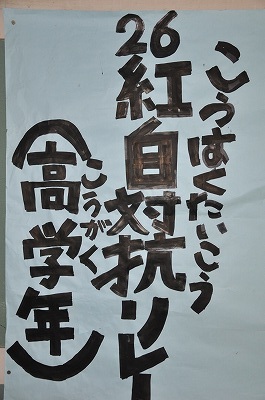 こうはくたいこう
26紅白対抗リレー
こうがく
（高学年）